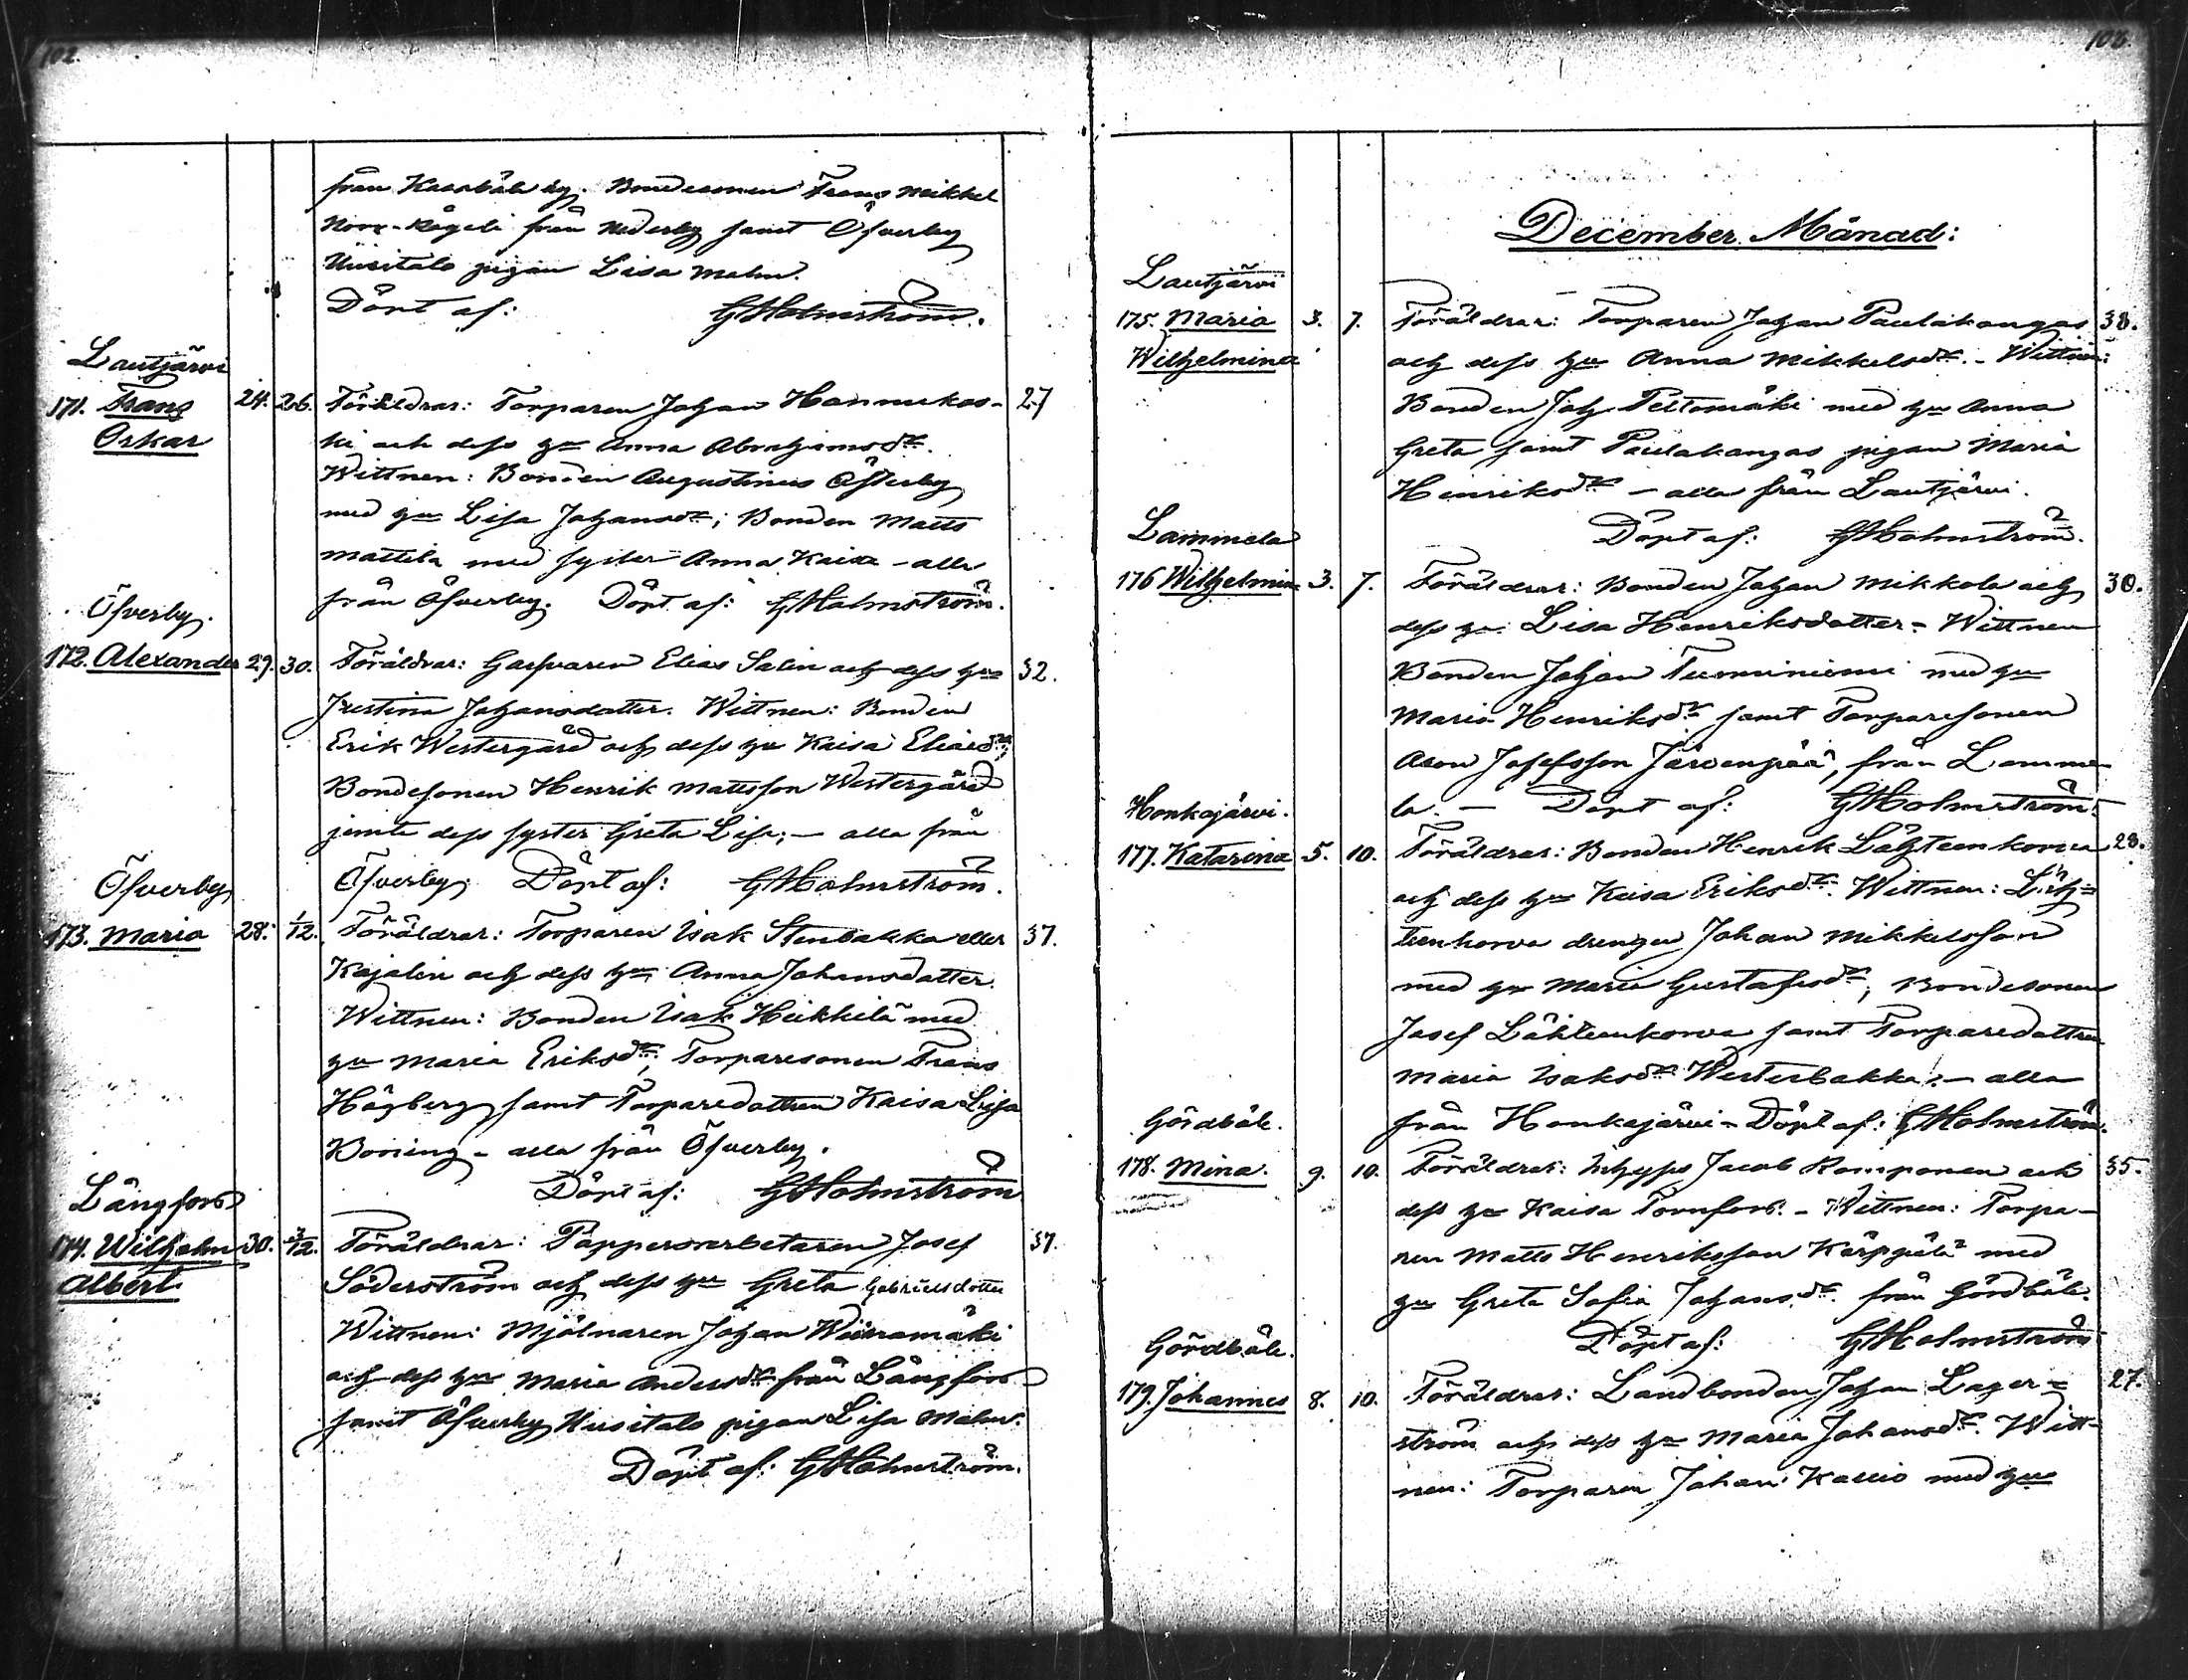 102.
från Kasaböle by. Bondesonen Frans Mikkel
Norr-Rågeli från Nederby samt Öfverby
Uusitalo pigan Lisa Malm.
Döpt af: GHolmström.
Lautjärvi
171. Frans 24. 26. Föräldrar: Torparen Johan Hannukos- 27
Oskar
ki och dess hu Anna Abrahamsdr.
Wittnen: Bonden Augustinus Österby
med hu Lisa Johansdr; Bonden Matts
Mattila med syster Anna Kaisa - alla
från Öfverby. Döpt af: GHolmström.
Öfverby.
172. Alexander 29. 30. Föräldrar: Garfvaren Elias Salin och dess hu 32.
Justina Johansdotter. Wittnen: Bonden
Erik Westergård och dess hu Kaisa Eliasdr;
Bondesonen Henrik Mattsson Westergård
jemte dess syster Greta Lisa; - alla från
Öfverby. Döpt af: GHolmström.
Öfverby
173. Maria 28. 1/12. Föräldrar: Torparen Isak Stenbakka eller 37.
Kajalin och dess hu Anna Johansdotter.
Wittnen: Bonden Isak Heikkilä med
hu Maria Eriksdr; Torparesonen Frans
Högberg samt Torparedottren Kaisa Lisa
Boning - alla från Öfverby.
Döpt af: GHolmström
Långfors
174. Wilhelm 30. 3/12. Föräldrar: Pappersarbetaren Josef 37.
Albert.
Söderström och dess hu Greta Gabrielsdotter
Wittnen: Mjölnaren Johan Wiinamäki
och dess hu Maria Andersdr från Långfors
samt Öfverby Uusitalo pigan Lisa Malm.
Döpt af: GHolmström.
103.
December Månad:
Lautjärvi
175. Maria 3. 7. Föräldrar: Torparen Johan Paulakangas 38.
Wilhelmina
och dess hu Anna Mikkelsdr. - Wittnen:
Bonden Joh. Peltomäki med hu Anna
Greta samt Paulakangas pigan Maria
Henriksdr - alla från Lautjärvi.
Döpt af: GHolmström.
Lammela
176 Wilhelmina 3. 7. Föräldrar: Bonden Johan Mikkola och 30.
dess hu Lisa Henriksdotter - Wittnen
Bonden Johan Tuominiemi med hu
Maria Henriksdr samt Torparesonen
Aron Josefsson Järvenpää, från Lamme
la. - Döpt af: GHolmström.
Honkajärvi.
177. Katarina 5. 10. Föräldrar: Bonden Henrik Lähteenkorva 28.
och dess hu Kaisa Eriksdr. Wittnen: Läh-
teenkorva drengen Johan Mikkelsson
med hu Maria Gustafsdr; Bondesonen
Josef Lähteenkorva samt Torparedottren
Maria Isaksdr Westerbakka; - alla
från Honkajärvi - Döpt af: GHolmström.
Gördböle.
178. Mina. 9. 10. Föräldrar: Inhyses Jacob Komponen och 35.
dess hu Kaisa Tornfors. - Wittnen: Torpa-
ren Matts Henriksson Kärppälä med
hu Greta Sofia Johansdr. från Gördböle.
Döpt af: GHolmström
Gördböle.
179. Johannes 8. 10. Föräldrar: Landbonden Johan Lager- 27.
ström och dess hu Maria Johansdr. Witt-
nen: Torparen Johan Kallio med hu